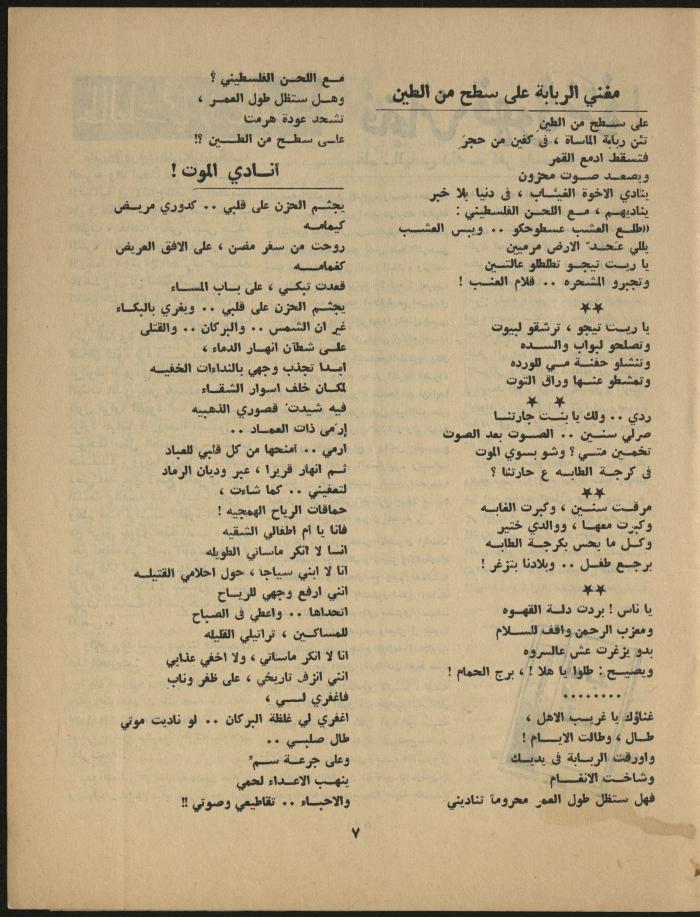 مغني الربابة على سطح من الطين
على سطح من الطين
تئن ربابة الماساة ، فى كفين من حجر
فتسقط ادمع القمر
ويصعد صوت محزون
ينادي الاخوة الغيّاب ، فى دنيا بلا خبر
يناديهم ، مع اللحن الفلسطيني :
«طلع العشب عسطوحكو .. ويبس العشب
يللي عنحد الارض مرميين
يا ريت تيجو تطلطلو عالتين
وتجبرو المشحره .. قلام العنب !
★★
يا ريت تيجو ، ترشقو لبيوت
وتصلحو لبواب والسده
وتنشلو حفنة مي للورده
وتمشطو عنها وراق التوت
★ ★
ردي .. ولك يا بنت جارتنا
صرلي سنين .. الصوت بعد الصوت
تخمين متي ؟ وشو بسوي الموت
فى كرجة الطابه ع حارتنا ؟
★★
مرقت سنين ، وكبرت الغابه
وكبرت معها ، ووالدي ختير
وكل ما يحس بكرجة الطابه
برجع طفل .. وبلادنا بتزغر !
★★
يا ناس ! بردت دلة القهوه
ومعزب الرحمن واقف للسلام
بدو يزغرت عش عالسروه
ويصيح : طلوا يا هلا ! ، برج الحمام !
........
غناؤك يا غريب الاهل ،
طال ، وطالت الايام !
واورقت الربابة فى يديك
وشاخت الانغام
فهل ستظل طول العمر محروماً تناديني
مع اللحن الفلسطيني ؟
وهل ستظل طول العمر ،
تشحد عودة هرمت
على سطح من الطين ؟!
أنادي الموت !
يجثم الحزن على قلبي .. كدوري مريض
كيمامه
روحت من سفر مضن ، على الافق العريض
كغمامه
قعدت تبكي ، على باب المساء
يجثم الحزن على قلبي .. ويغري بالبكاء
غير ان الشمس .. والبركان .. والقتلى
على شطآن انهار الدماء ،
ابدا تجذب وجهي بالنداءات الخفيه
لمكان خلف اسوار الشقاء
فيه شيدت قصوري الذهبيه
إرمي ذات العماد ..
ارمي .. أمنحها من كل قلبي للعباد
ثم انهار قريرا ، عبر وديان الرماد
لتعفيني .. كما شاءت ،
حماقات الرياح الهمجيه !
فانا يا أم اطفالي الشقيه
انا لا انكر ماساتي الطويله
انا لا ابني سياجا ، حول احلامي القتيله
انني ارفع وجهي للرياح
اتحداها .. واعطي فى الصباح
للمساكين ، تراتيلي القليله
انا لا انكر ماساتي ، ولا اخفي عذابي
انني انزف تاريخي ، على ظفر وناب
فاغفري لي ،
اغفري لي غلظة البركان .. لو ناديت موتي
طال صلبي ..
وعلى جرعة سم
ينهب الاعداء لحمي
والاحباء .. تقاطيعي وصوتي !!
٧